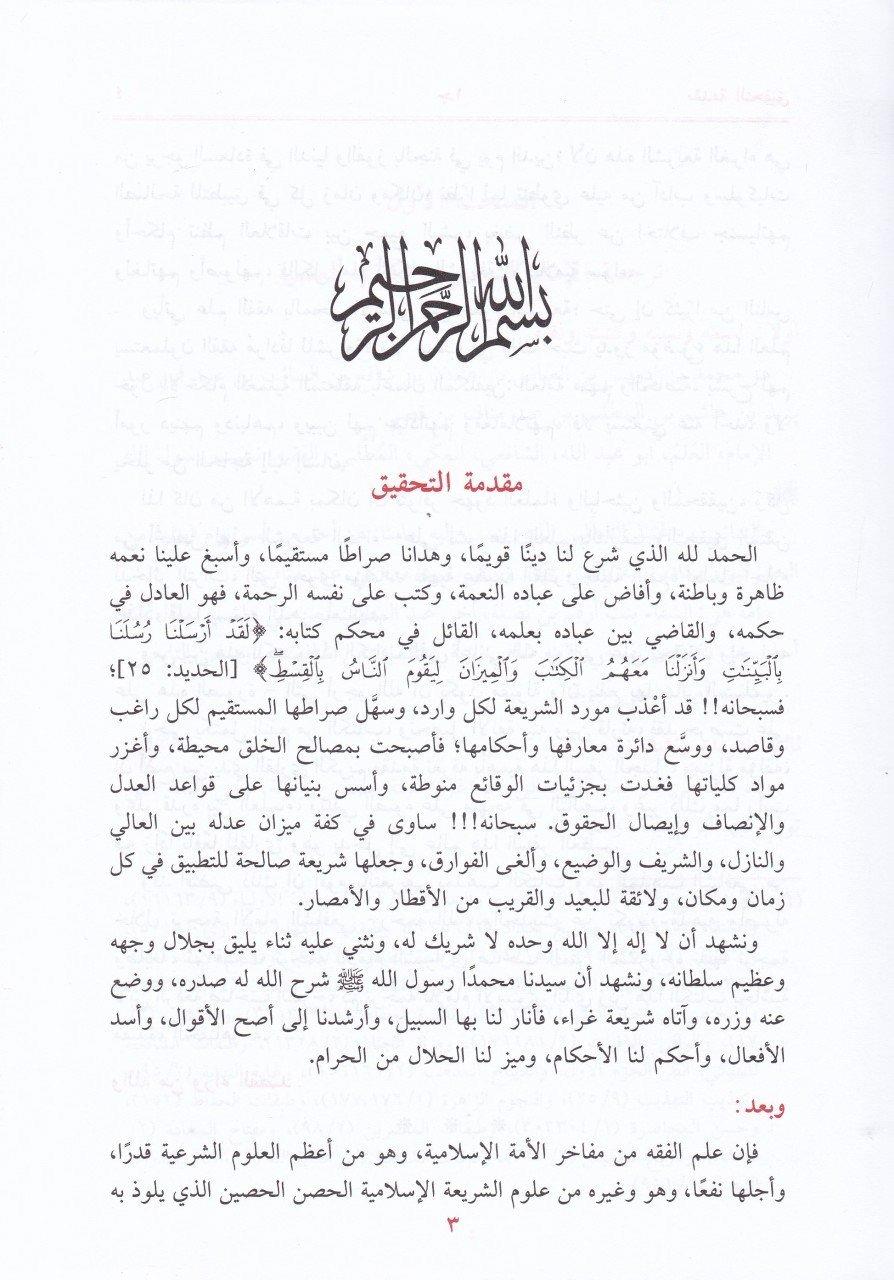 بسم الله الرحمن الرحيم
مقدمة التحقيق
الحمد لله الذي شرع لنا دينًا قويمًا، وهدانا صراطًا مستقيمًا، وأسبغ علينا نعمه
ظاهرة وباطنة، وأفاض على عباده النعمة، وكتب على نفسه الرحمة، فهو العادل في
حكمه، والقاضي بين عباده بعلمه، القائل في محكم كتابه: ﴿لَقَدۡ أَرۡسَلۡنَا رُسُلَنَا
بِٱلۡبَيِّنَٰتِ وَأَنزَلۡنَا مَعَهُمُ ٱلۡكِتَٰبَ وَٱلۡمِيزَانَ لِيَقُومَ ٱلنَّاسُ بِٱلۡقِسۡطِۖ﴾ [الحديد: ٢٥]؛
فسبحانه!! قد أعْذب مورد الشريعة لكل وارد، وسهَّل صراطها المستقيم لكل راغب
وقاصد، ووسَّع دائرة معارفها وأحكامها؛ فأصبحت بمصالح الخلق محيطة، وأغزر
مواد كلياتها فغدت بجزئيات الوقائع منوطة، وأسس بنيانها على قواعد العدل
والإنصاف وإيصال الحقوق. سبحانه!!! ساوى في كفة ميزان عدله بين العالي
والنازل، والشريف والوضيع، وألغى الفوارق، وجعلها شريعة صالحة للتطبيق في كل
زمان ومكان، ولائقة للبعيد والقريب من الأقطار والأمصار.
ونشهد أن لا إله إلا الله وحده لا شريك له، ونثني عليه ثناء يليق بجلال وجهه
وعظيم سلطانه، ونشهد أن سيدنا محمدًا رسول الله ﷺ شرح الله له صدره، ووضع
عنه وزره، وآتاه شريعة غراء، فأنار لنا بها السبيل، وأرشدنا إلى أصح الأقوال، وأسد
الأفعال، وأحكم لنا الأحكام، وميز لنا الحلال من الحرام.
وبعد:
فإن علم الفقه من مفاخر الأمة الإسلامية، وهو من أعظم العلوم الشرعية قدرًا،
وأجلها نفعًا، وهو وغيره من علوم الشريعة الإسلامية الحصن الحصين الذي يلوذ به
٣